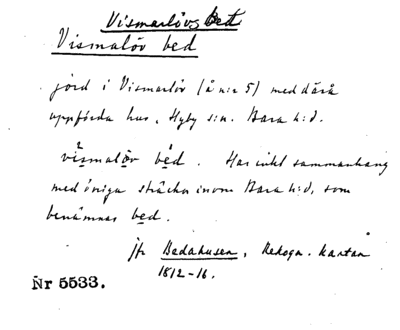 Vismarlövs Bett
Vismalöv bed
jord i Vismarlöv (å n:r 5) med därå
uppförda hus, Hyby s:n. Bara h:d.
vismalöv bed. Har intet sammanhang
med övriga sträckor inom Bara h:d, som
benämnas bed.
jfr Badahusen, Rekogn. kartan
1812-16.
Nr 5533.